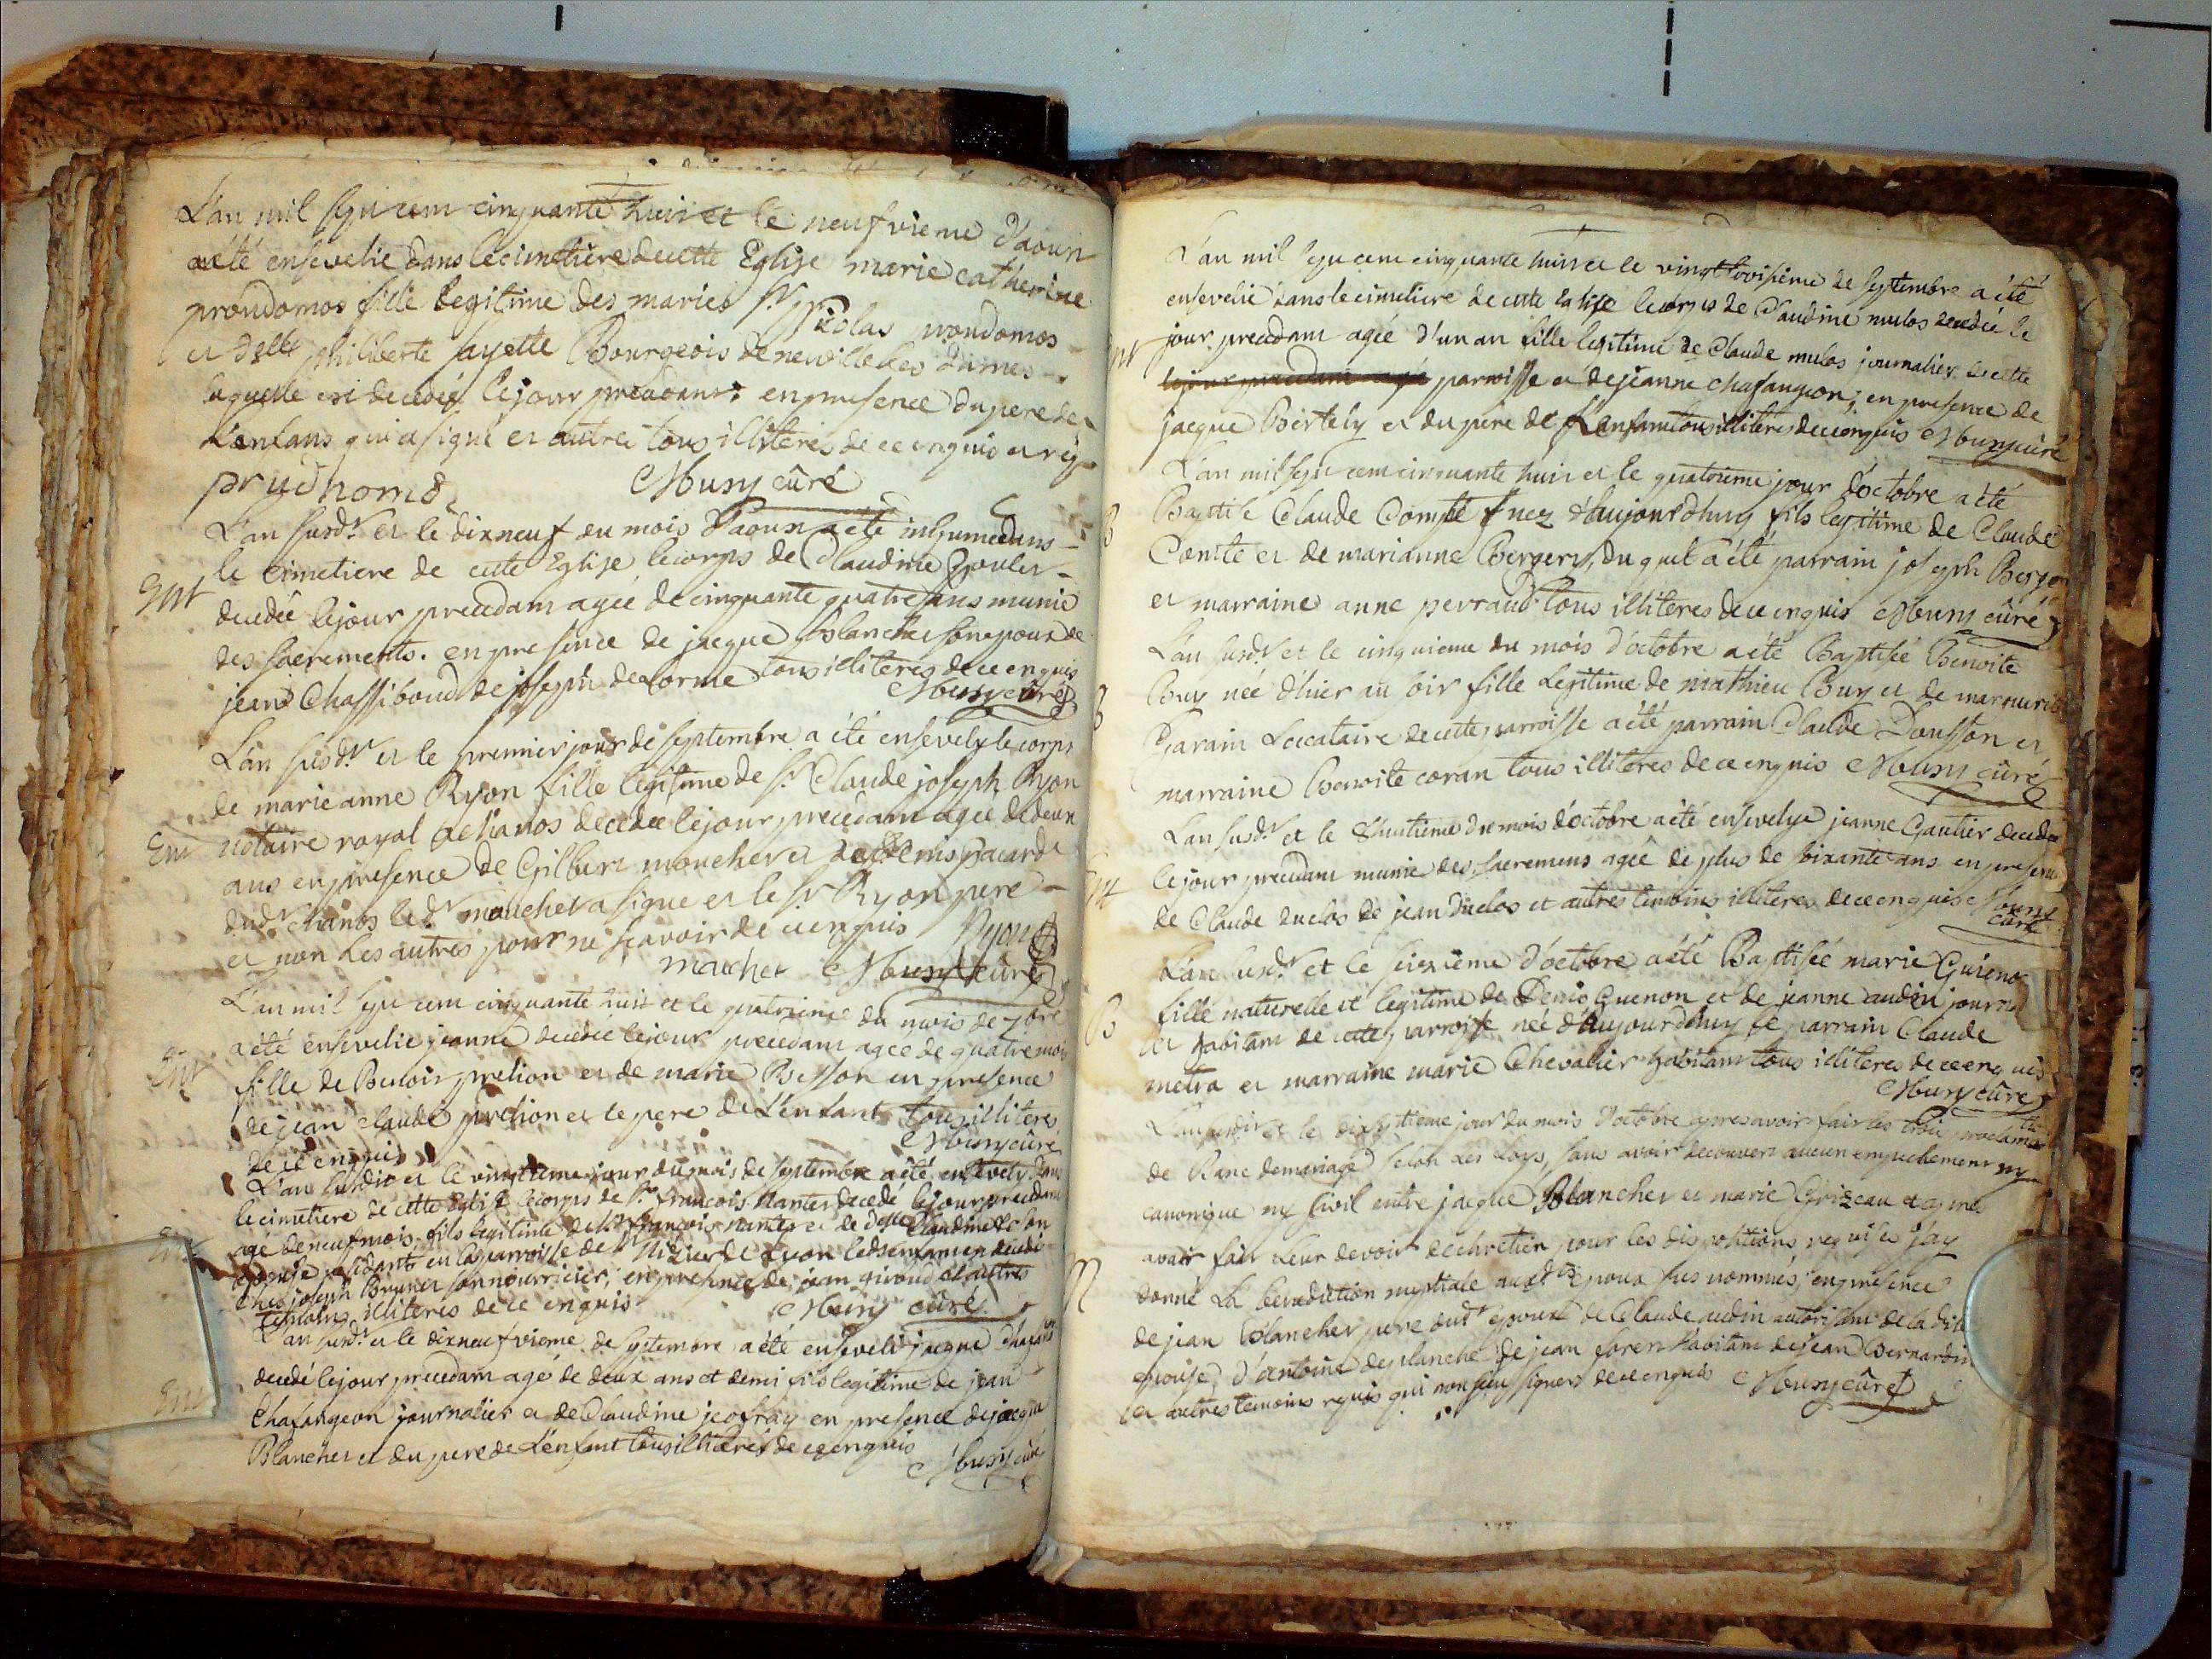 L'an mil sept cent cinquante huit et le neufvieme d'aoust
a été ensevelie dans le cimetiere de cette Eglise marie catherine
proudomos fille legitime des mariés Sr Nicolas proudomos
et Delle philiberte fayette Bourgeois de neuville les dames
laquelle est decedée le jour precedant en presence du pere de
L'enfant qui a signé et autres tous illiteres de ce enquis et req
prudhomos Musy cûré
L'an susdt et le dixneuf du mois d'aoust a été inhumée dans
le cimetiere de cette Eglise le corps de Claudine
Ent
decedée le jour precedant agée de cinquante quatre ans munie
des sacrements. en presence de jacque Blanchet son epoux de
jean Chassiboud de joseph delorme tous illiteres de ce enquis
Musy cûré
L'an susdt et le premier jour de septembre a été ensevely le corps
de marie anne Ryon fille legitime de Sr Claude joseph Ryon
Ent
notaire royal de Chanos decedée le jour precedant agée de deux
ans en presence de Gilbert mouchet et de denis pacard
dudt chanos ledt mouchet a signé et le Sr Ryon pere
et non Les autres pour ne sçavoir de ce enquis Ryon
mouchet Musy cûré
L'an mil sept cent cinquante huit et le quatrieme du mois de 7bre
a été ensevelie jeanne decedée le jour precedant agée de quatre mois
Ent
fille de Benoit prelion et de marie Besson en presence
de jean Claude prelion et le pere de L'enfant tous illiteres
de ce enquis Musy cûré
L'an susdit et le vingtieme jour du mois de septembre a été ensevely dans
le cimetiere de cette Eglise le corps de Sr francois Nantes decedé le jour precedant
Ent
agé de neuf mois, fils legitime de Sr francois nantes et de delle Claudine
epouse residants en la parroisse de St Nizier de Lyon ledt enfant est decedé
chez joseph Brunet son nourricier, en presence de jean giroud et autres
temoins illiteres de ce enquis Musy cûré
L'an susdt et le dixneufvieme de septembre a été enseveli jacque
Ent
decedé le jour precedant agé de deux ans et demi fils legitime de jean
Chafangeon journalier et de Claudine jeofray en presence de jacque
Blanchet et du pere de L'enfant tous illiteres de ce enquis
Musy cûré
L'an mil sept cent cinquante huit et le vingt troisieme de septembre a été
ensevelie dans le cimetiere de cette Eglise le corps de Claudine mulos decedée le
Ent
jour precedant agée d'un an fille legitime de Claude mulos journalier de cette
le jour precedant agé parroisse et de jeanne chafangeon, en presence de
jacque Bertely et du pere de L'enfant tous illiteres de ce enquis Musy cûré
L'an mil sept cent cinquante huit et le quatrieme jour d'octobre a été
B
Baptisé Claude Compte nez d'aujourdhuy fils legitime de Claude
Comte et de marianne Bergery, du quel a été parrain joseph Berger
et marraine anne perraud tous illiteres de ce enquis Musy cûré
L'an susdt et le cinquieme du mois d'octobre a été Baptisée Benoite
B
Buy née d'hier au soir fille Legitime de mathieu Buy et de margurite
Garain Locataire de cette parroisse a été parrain Claude Dousson et
marraine Benoite coran tous illiteres de ce enquis Musy cûré
L'an susdt et le huitieme du mois d'octobre a été ensevelye jeanne Gautier decedée
Ent
le jour precedant munie des sacremens agée de plus de soixante ans en presence
de Claude duclos de jean duclos et autres temoins illiteres de ce enquis Musy
cûré
L'an susdt et le seizieme d'octobre a été Baptisée marie Guieno
B
fille naturelle et legitime de Denis Guenon et de jeanne audin journa
et habitant de cette parroisse née d'aujourdhuy le parrain Claude
metra et marraine marie Chevalier habitant tous illiteres de ce enquis
Musy cûré
L'an susdit et le dixseptieme jour du mois d'octobre apres avoir fait les trois proclamations
de Banc de mariage selon Les Loys, sans avoir decouvert aucun empechement ny
canonique ny sivil entre jacque Blanchet et marie Grizeau et apres
avoir fait Leur devoir de chretien pour les dispositions requises j'ay
M
donné La benediction nuptiale audts epoux sus nommés, en presence
de jean Blanchet pere dudt epoux de Claude audin autorisant de la dite
epouse, d'antoine deplanche de jean foret habitant de jean Bernardin
et autres temoins requis qui n'ont sceu signer de ce enquis Musy cûré